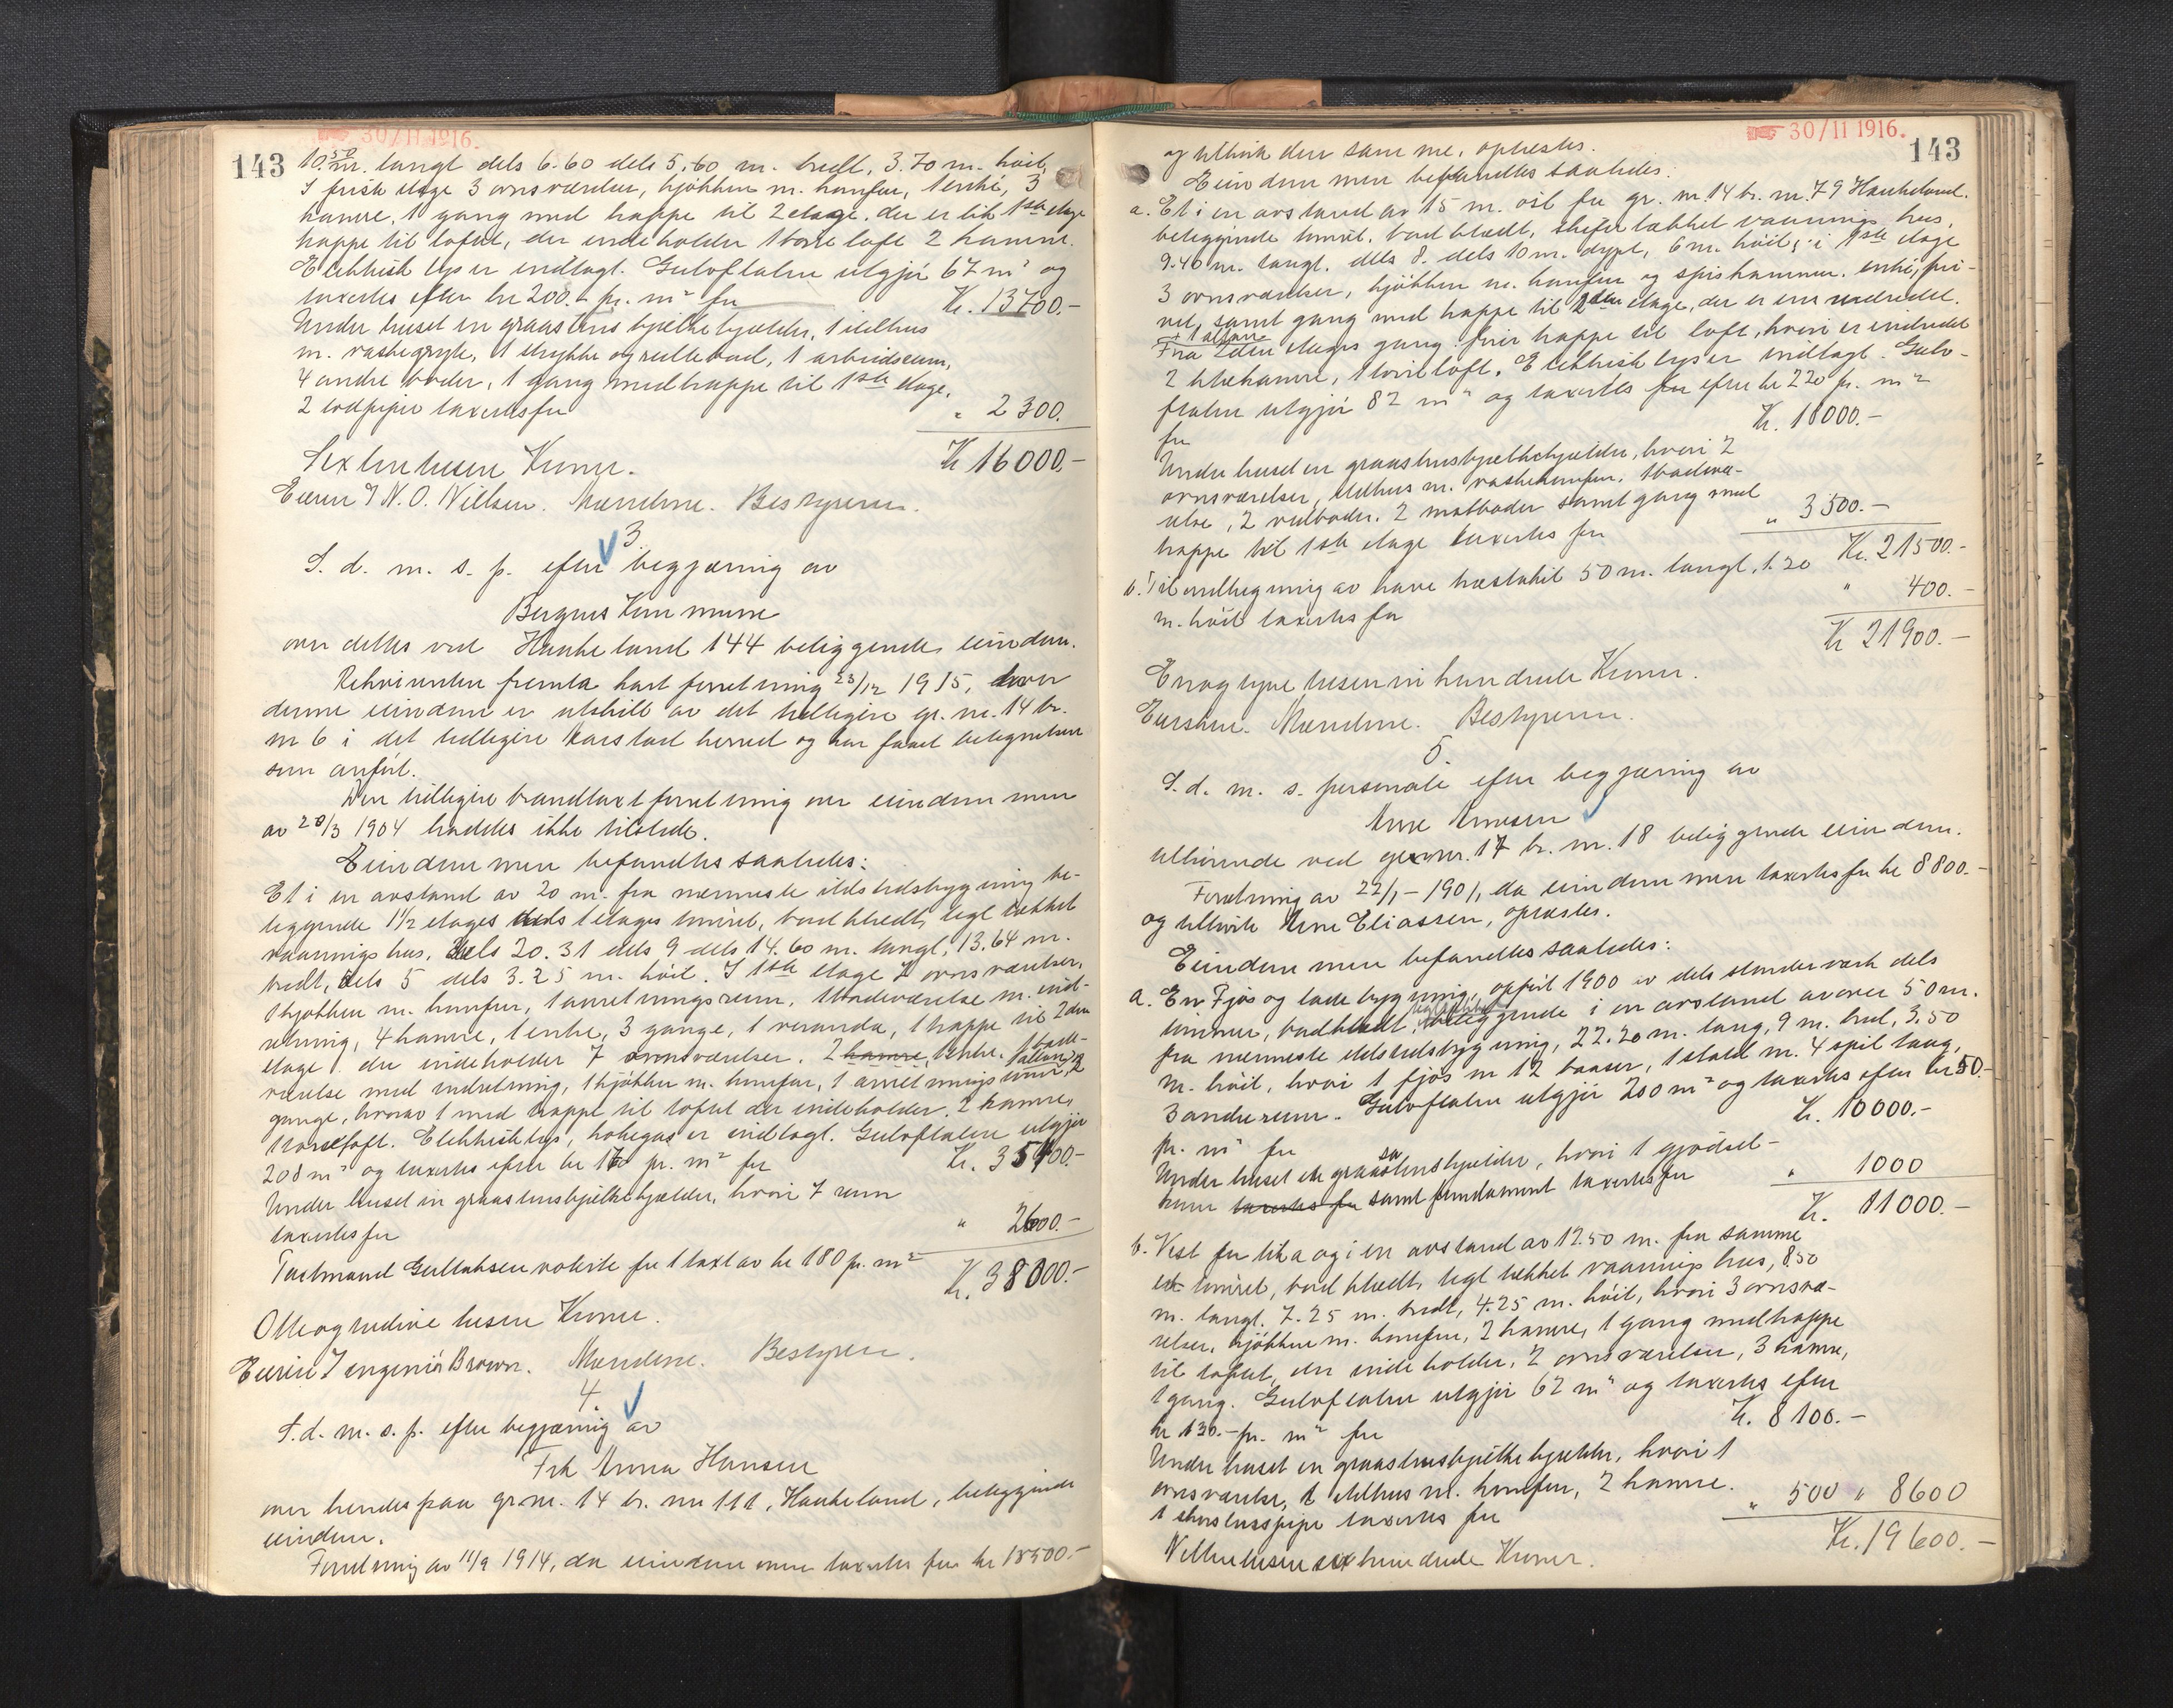 30/11 1916.
143
10.50 m. langt dels 6.60 dels 5.60 m. bredt, 3.70 m. høit,
I første etage 3 ovnsværelser, kjøkken m. komfur, 1 entré, 3
kamre, 1 gang med trappe til 2 etage. der er lik 1ste etage
trappe til loftet, der indeholder 1 tørreloft 2 kamre.
Elektrisk lys er indlagt. Gulvflaten utgjør 67 m² og
taxertes efter kr 200.- pr. m² for Kr. 13700.-
Under huset en graastensbjelkekjælder, 1 ildhus
m. vaskegryte, 1 strykke og rullebod, 1 arbeidsrum,
4 andre boder, 1 gang med trappe til 1ste etage.
2 rørpiper taxertes for " 2300.
Kr 16000.-
Sexten tusen Kroner.
Eieren I N. O. Nilsen. Mændene. Bestyreren.
3
S. d. m. s. p. efter begjæring av
Bergens Kommune
over dettes ved Haukeland 144 beliggende eiendom.
Rekvirenten fremla kart forretning 23/12 1915, hvor
denne eiendom er utskilt av det tidligere gr. nr. 14 br.
nr 6 i det tidligere Aarstad herred og har faaet betegnelsen
som anført.
Den tidligere brandtaxtforretning over eiendommen
av 28/3 1904 haddes ikke tilstede.
Eiendommen befandtes saaledes:
Et i en avstand av 20 m. fra nærmeste ildstedsbygning be-
liggende 1½ etages dels 1 etages tømret, bordklædt, tegltækket
vaaningshus, dels 20.31 dels 9 dels 14.60 m. langt, 13.64 m.
bredt, dels 5 dels 3.25 m. høit. I 1ste etage 7 ovnsværelser,
1 kjøkken m. komfur, 1 anretningsrum, 1 badeværelse m. ind-
retning, 4 kamre, 1 entre, 3 gange, 1 veranda, 1 trappe til 2den
etage der indeholder 7 ovnsværelser. 2 kamre, 1 entre. 1 bade-
værelse med indretning, 1 kjøkken m. komfur, 1 anretningsrum, 1 altan, 2
gange, hvorav 1 med trappe til loftet der indeholder 2 kamre,
1 tørreloft. Elektrisk lys, kokegas er indlagt. Gulvflaten utgjør
208 m² og taxertes efter kr 170 pr. m² for Kr. 35400.-
Under huset en graastensbjelkekjælder, hvori 7 rum
taxertes for " 2600.-
Takstmand Gullaksen voterte for 1 taxt av kr 180 pr. m²
Kr. 38000.-
Otteogtredive tusen Kroner.
Eieren I ingeniør Brown. Mændene. Bestyreren.
4.
S. d. m. s. p. efter begjæring av
Frk Anna Hansen
over hendes paa gr.nr. 14 br. nr 111, Haukeland, beliggende
eiendom.
Forretning av 11/9 1914, da eiendommen taxertes for kr 18500.-
30/11 1916.
143
og tilhørte den samme, oplæstes.
Eiendommen befandtes saaledes:
a. Et i en avstand av 15 m. øst for gr. nr. 14 br. nr. 79 Haukeland.
beliggende tømret, bordklædt, skifertækket vaaningshus,
9.40 m. langt, dels 8. dels 10 m. dypt, 6 m. høit, i 1ste etage
3 ovnsværelser, kjøkken m. komfur og spiskammer, entré, pri-
vet, samt gang med trappe til 2den etage, der er ens indredet.
+ 1 altan
Fra 2den etages gang fører trappe til loft, hvori er indredet
2 klækamre, 1 tørreloft. Elektrisk lys er indlagt. Gulv-
flaten utgjør 82 m² og taxertes for efter kr 220 pr. m²
for Kr. 18000.-
Under huset en graastensbjelkekjælder, hvori 2
ovnsværelser, ildhus m. vaskekomfur, 1 badevæ-
relse, 2 vedboder, 2 matboder samt gang med
trappe til 1ste etage taxertes for " 3500.-
Kr. 21500.-
b. Til indhegning av have træstakit 50 m. langt, 1.20
m. høit taxertes for " 400.-
Kr 21900.-
Enogtyve tusen ni hundrede Kroner.
Eiersken. Mændene. Bestyreren.
5
S. d. m. s. personale efter begjæring av
Arne Arnesen
tilhørende ved gr.nr. 17 br. nr. 18 beliggende eiendom.
Forretning av 22/1 - 1901, da eiendommen taxertes for kr 8800.-
og tilhørte Arne Eliassen, oplæstes.
Eiendommen befandtes saaledes:
a. En Fjøs og ladebygning, opført 1900 av dels stenderværk dels
tømmer, bordklædt, tegltækket beliggende i en avstand av over 50 m.
fra nærmeste ildstedsbygning, 22.20 m. lang, 9 m. bred, 3.50
m. høit, hvori 1 fjøs m 12 baaser, 1 stald m. 4 spiltaug,
3 andre rum. Gulvflaten utgjør 200 m² og taxertes efter kr 50.-
pr. m² for Kr. 10000.-
Under huset en graastenskjælder, hvori 1 gjødsel-
rum taxertes for samt fundament taxertes for " 1000
Kr. 11000.-
b. Vest for lit a og i en avstand av 12.50 m. fra samme
et tømret, bordklædt, tegltækket vaaningshus, 8.50
m. langt, 7.25 m. bredt, 4.25 m. høit, hvori 3 ovnsvæ-
relser, kjøkken m. komfur, 2 kamre, 1 gang med trappe
til loftet, der indeholder, 2 ovnsværelser, 3 kamre,
1 gang. Gulvflaten utgjør 62 m² og taxertes efter
kr 130.- pr. m² for Kr. 8100.-
Under huset en graastensbjelkekjælder, hvori 1
ovnsværelse, 1 ildhus m. komfur, 2 kamre.
1 skorstenspipe taxertes for " 500 " 8600
Kr. 19600.-
Nitten tusen sex hundrede Kroner.